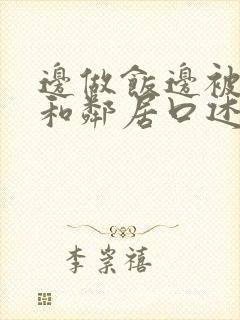 邊做飯邊被
和鄰居口述
李崇禧